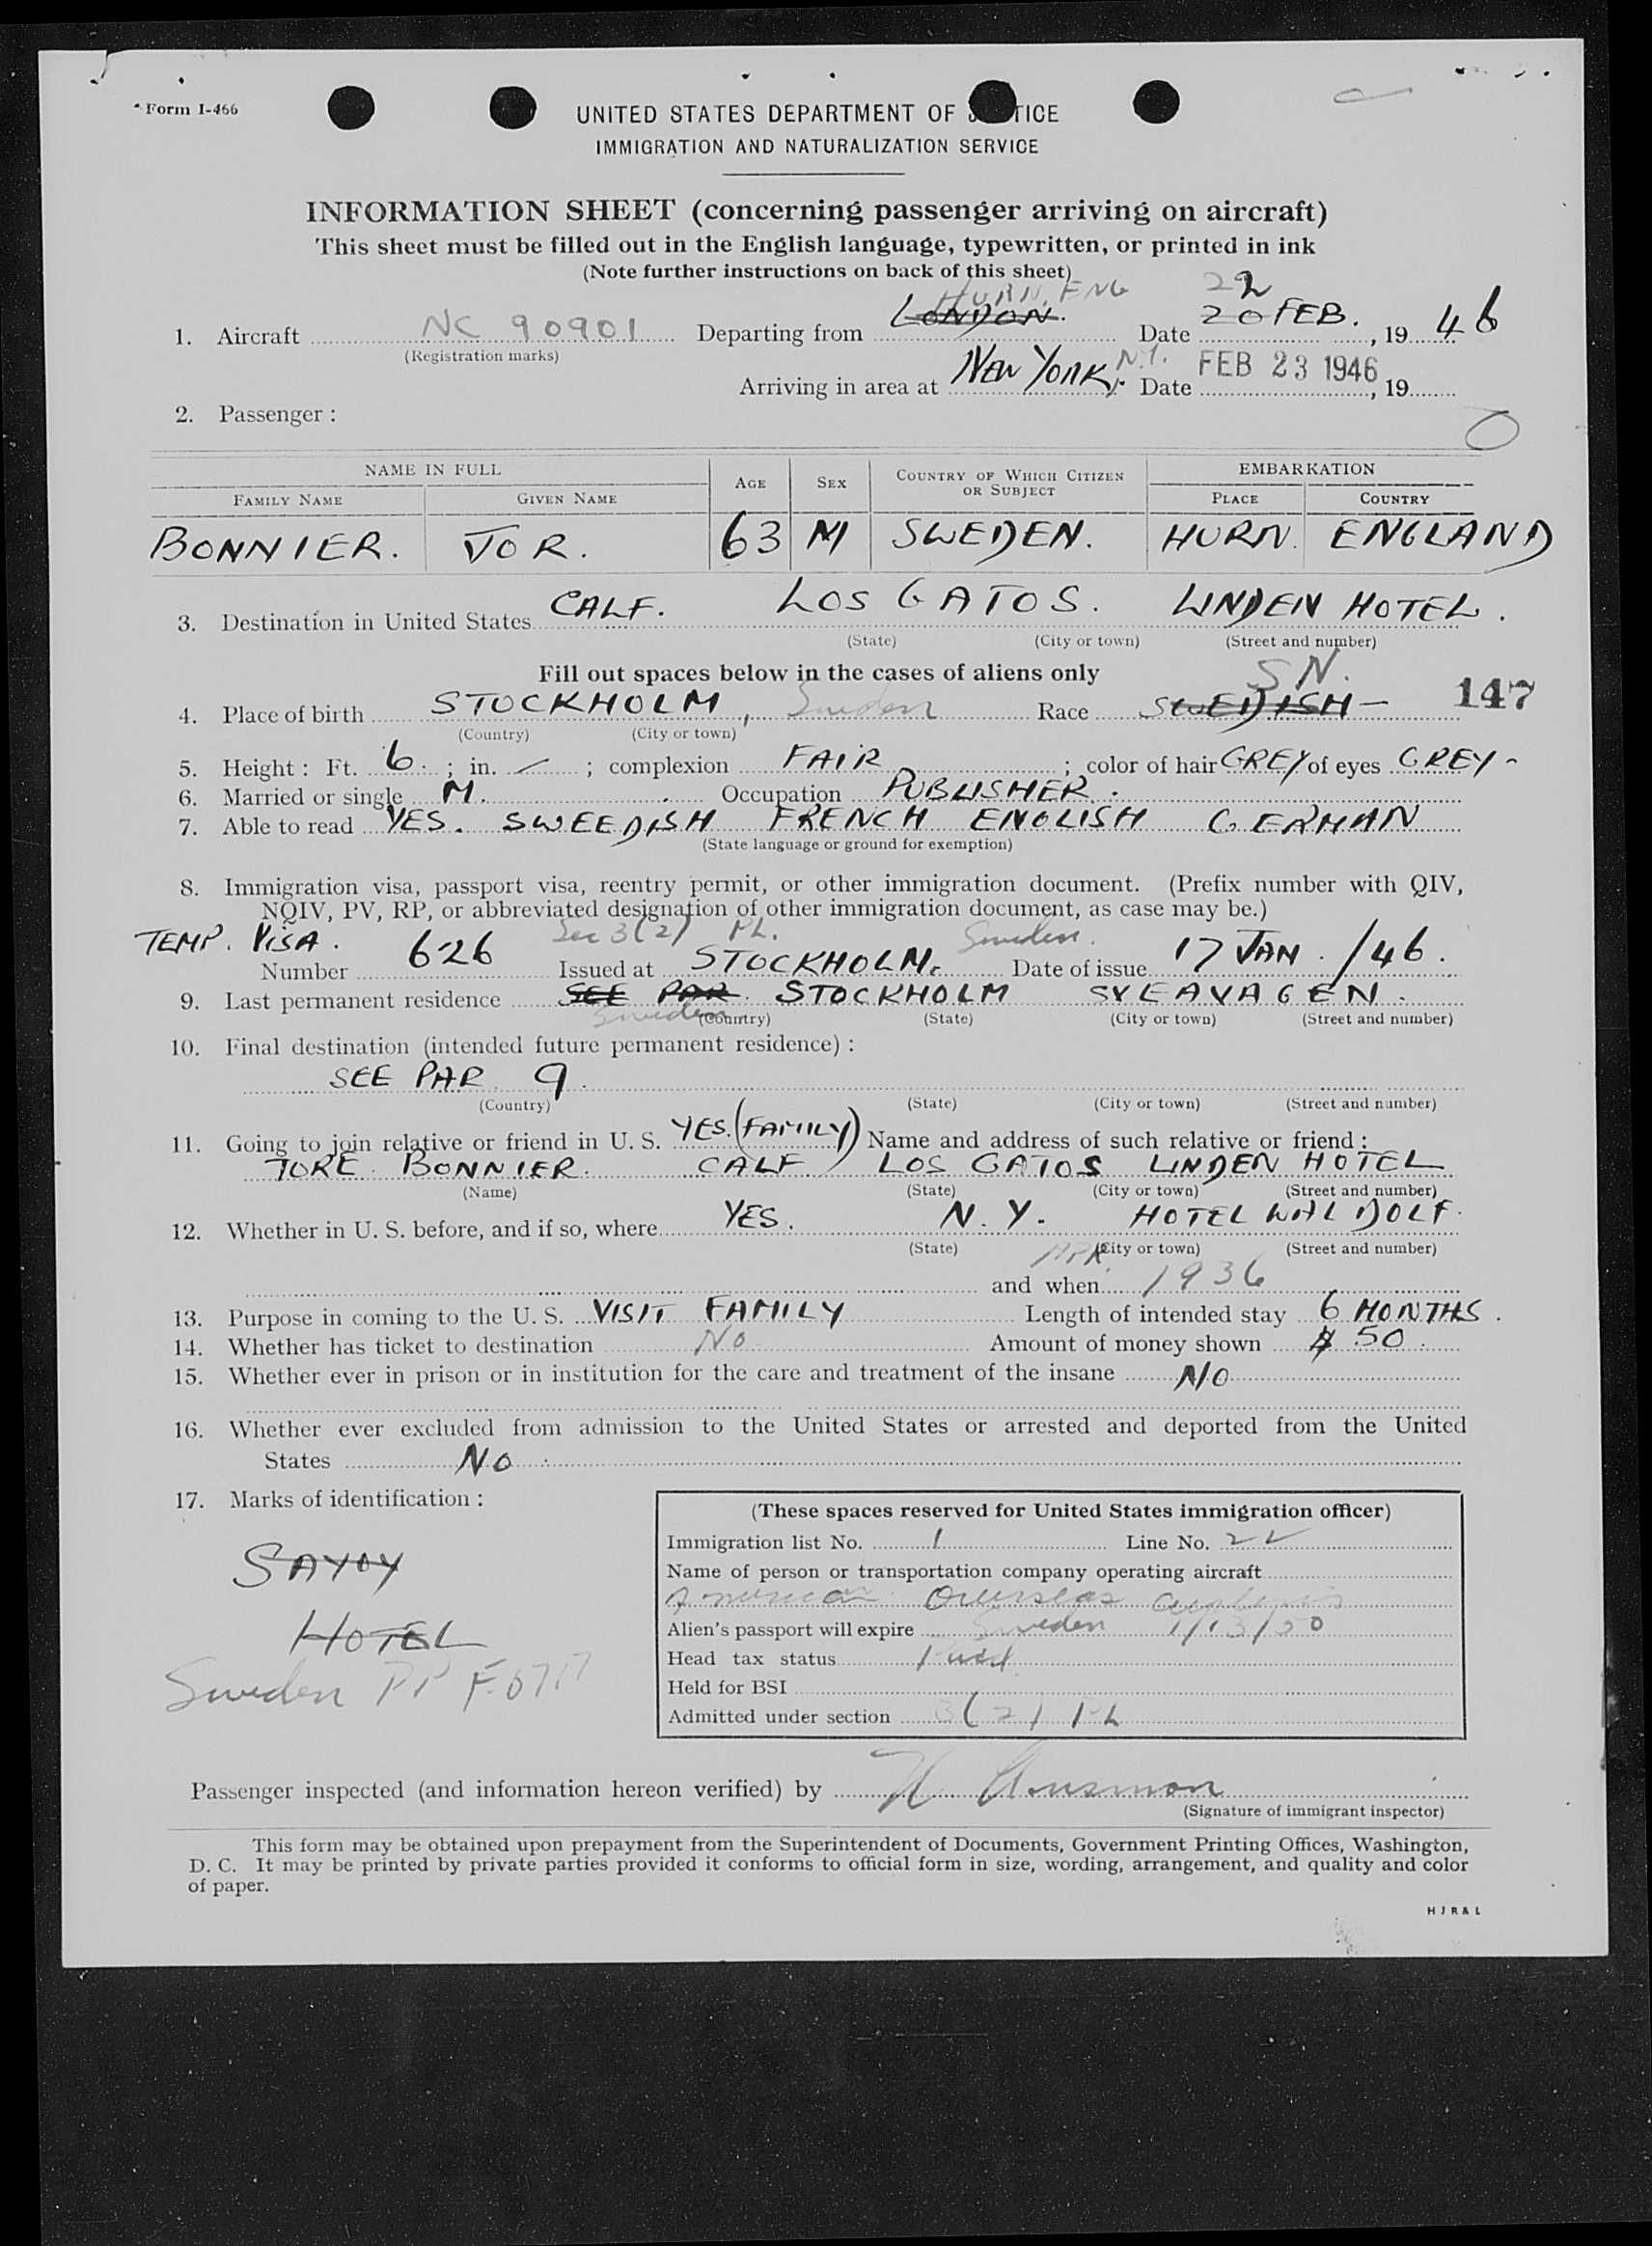 Form I-466
UNITED STATES DEPARTMENT OF J TICE
IMMIGRATION AND NATURALIZATION SERVICE
INFORMATION SHEET (concerning passenger arriving on aircraft)
This sheet must be filled out in the English language, typewritten, or printed in ink
(Note further instructions on back of this sheet)
HURN, ENG 22
1. Aircraft NC 90901 Departing from LONDON. Date 20 FEB., 19 46
(Registration marks)
Arriving in area at NEW YORK, N.Y. Date FEB 23 1946, 19
2. Passenger :
NAME IN FULL AGE SEX COUNTRY OF WHICH CITIZEN OR SUBJECT EMBARKATION
FAMILY NAME GIVEN NAME PLACE COUNTRY
BONNIER. TOR. 63 M SWEDEN. HURN. ENGLAND
3. Destination in United States CALF. LOS GATOS. LINDEN HOTEL.
(State) (City or town) (Street and number)
Fill out spaces below in the cases of aliens only SN. 147
4. Place of birth STOCKHOLM, Sweden Race SWEDISH -
(Country) (City or town)
5. Height : Ft. 6. ; in. / ; complexion FAIR ; color of hair GREY of eyes GREY -
6. Married or single M. Occupation PUBLISHER.
7. Able to read YES. SWEEDISH FRENCH ENGLISH GERMAN
(State language or ground for exemption)
8. Immigration visa, passport visa, reentry permit, or other immigration document. (Prefix number with QIV,
NQIV, PV, RP, or abbreviated designation of other immigration document, as case may be.)
TEMP. VISA. Sec 3(2) PL. Sweden.
Number 626 Issued at STOCKHOLM. Date of issue 17 JAN. /46.
9. Last permanent residence SEE PAR. STOCKHOLM SVEAVAGEN.
Sweden (Country) (State) (City or town) (Street and number)
10. Final destination (intended future permanent residence) :
SEE PAR 9.
(Country) (State) (City or town) (Street and number)
11. Going to join relative or friend in U. S. YES. (FAMILY) Name and address of such relative or friend :
TORE BONNIER. CALF LOS GATOS LINDEN HOTEL
(Name) (State) (City or town) (Street and number)
12. Whether in U. S. before, and if so, where YES. N. Y. HOTEL WALDOLF.
(State) (City or town) (Street and number)
APR.
and when 1936
13. Purpose in coming to the U. S. VISIT FAMILY Length of intended stay 6 MONTHS.
14. Whether has ticket to destination No Amount of money shown $ 50.
15. Whether ever in prison or in institution for the care and treatment of the insane NO
16. Whether ever excluded from admission to the United States or arrested and deported from the United
States No
17. Marks of identification :
SAVOY
HOTEL
Sweden PP F.0717
(These spaces reserved for United States immigration officer)
Immigration list No. 1 Line No. 22
Name of person or transportation company operating aircraft
American Overseas
Alien's passport will expire Sweden 1/13/50
Head tax status Paid
Held for BSI
Admitted under section 3(2) PL
Passenger inspected (and information hereon verified) by
(Signature of immigrant inspector)
This form may be obtained upon prepayment from the Superintendent of Documents, Government Printing Offices, Washington,
D. C. It may be printed by private parties provided it conforms to official form in size, wording, arrangement, and quality and color
of paper.
H J R & L